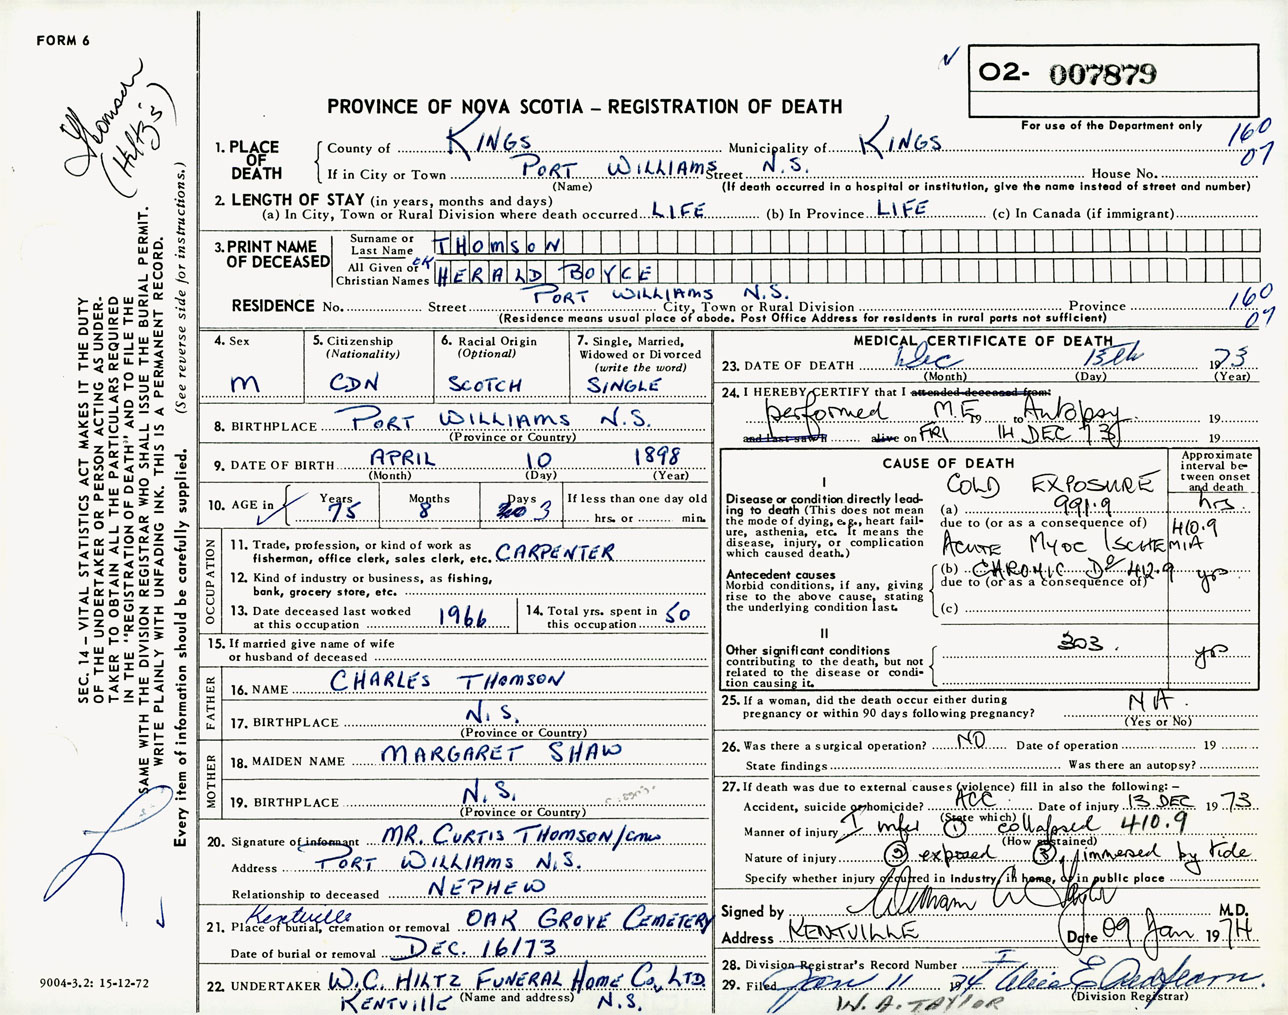 FORM 6
Thomson
(Hiltz's)
SEC. 14 — VITAL STATISTICS ACT MAKES IT THE DUTY
OF THE UNDERTAKER OR PERSON ACTING AS UNDER-
TAKER TO OBTAIN ALL THE PARTICULARS REQUIRED
IN THE "REGISTRATION OF DEATH" AND TO FILE THE
SAME WITH THE DIVISION REGISTRAR WHO SHALL ISSUE THE BURIAL PERMIT.
WRITE PLAINLY WITH UNFADING INK. THIS IS A PERMANENT RECORD.
Every item of information should be carefully supplied. (See reverse side for instructions.)
9004-3.2: 15-12-72
02- 007879
PROVINCE OF NOVA SCOTIA – REGISTRATION OF DEATH
For use of the Department only
160
07
1. PLACE OF DEATH
County of KINGS Municipality of KINGS
If in City or Town PORT WILLIAMS N.S. Street House No.
(Name) (If death occurred in a hospital or institution, give the name instead of street and number)
2. LENGTH OF STAY (in years, months and days)
(a) In City, Town or Rural Division where death occurred LIFE (b) In Province LIFE (c) In Canada (if immigrant)
3. PRINT NAME OF DECEASED
Surname or Last Name THOMSON
All Given or Christian Names OK HERALD BOYCE
PORT WILLIAMS N.S.
RESIDENCE No. Street City, Town or Rural Division Province 160
(Residence means usual place of abode. Post Office Address for residents in rural parts not sufficient) 07
4. Sex M
5. Citizenship (Nationality) CDN
6. Racial Origin (Optional) SCOTCH
7. Single, Married, Widowed or Divorced (write the word) SINGLE
8. BIRTHPLACE PORT WILLIAMS N.S.
(Province or Country)
9. DATE OF BIRTH APRIL 10 1898
(Month) (Day) (Year)
10. AGE in Years 75 Months 8 Days 3 If less than one day old hrs. or min.
OCCUPATION
11. Trade, profession, or kind of work as
fisherman, office clerk, sales clerk, etc. CARPENTER
12. Kind of industry or business, as fishing,
bank, grocery store, etc.
13. Date deceased last worked at this occupation 1966
14. Total yrs. spent in this occupation 50
15. If married give name of wife
or husband of deceased
FATHER
16. NAME CHARLES THOMSON
17. BIRTHPLACE N.S.
(Province or Country)
MOTHER
18. MAIDEN NAME MARGARET SHAW
19. BIRTHPLACE N.S.
(Province or Country)
20. Signature of informant MR. CURTIS THOMSON/
Address PORT WILLIAMS N.S.
Relationship to deceased NEPHEW
Kentville
21. Place of burial, cremation or removal OAK GROVE CEMETERY
Date of burial or removal DEC. 16/73
22. UNDERTAKER W.C. HILTZ FUNERAL HOME CO. LTD.
KENTVILLE (Name and address) N.S.
MEDICAL CERTIFICATE OF DEATH
23. DATE OF DEATH Dec 15th 1973
(Month) (Day) (Year)
24. I HEREBY CERTIFY that I attended deceased from:
performed M.E. 19 to Autopsy 19
and last saw h alive on FRI 14 DEC 73 19
CAUSE OF DEATH
Approximate interval between onset and death
I
Disease or condition directly lead-
ing to death (This does not mean
the mode of dying, e.g., heart fail-
ure, asthenia, etc. It means the
disease, injury, or complication
which caused death.)
COLD EXPOSURE
(a) 991.9 hrs.
due to (or as a consequence of) 410.9
ACUTE MYOC ISCHEMIA
Antecedent causes
Morbid conditions, if any, giving
rise to the above cause, stating
the underlying condition last.
(b) CHRONIC Do 412.9 yrs
due to (or as a consequence of)
(c)
II
Other significant conditions
contributing to the death, but not
related to the disease or condi-
tion causing it.
303. yrs
25. If a woman, did the death occur either during
pregnancy or within 90 days following pregnancy? NA.
(Yes or No)
26. Was there a surgical operation? NO Date of operation 19
State findings Was there an autopsy?
27. If death was due to external causes (violence) fill in also the following:—
Accident, suicide or homicide? ACC. Date of injury 13 DEC 1973
(State which)
Manner of injury I infer (1) collapsed 410.9
(How sustained)
Nature of injury (2) exposed (3) immersed by tide
Specify whether injury occurred in industry, in home, or in public place
Signed by William A Taylor M.D.
Address KENTVILLE Date 09 Jan 1974
28. Division Registrar's Record Number I
29. Filed Jan 11 1974 Alice E
(Division Registrar)
W. A. TAYLOR